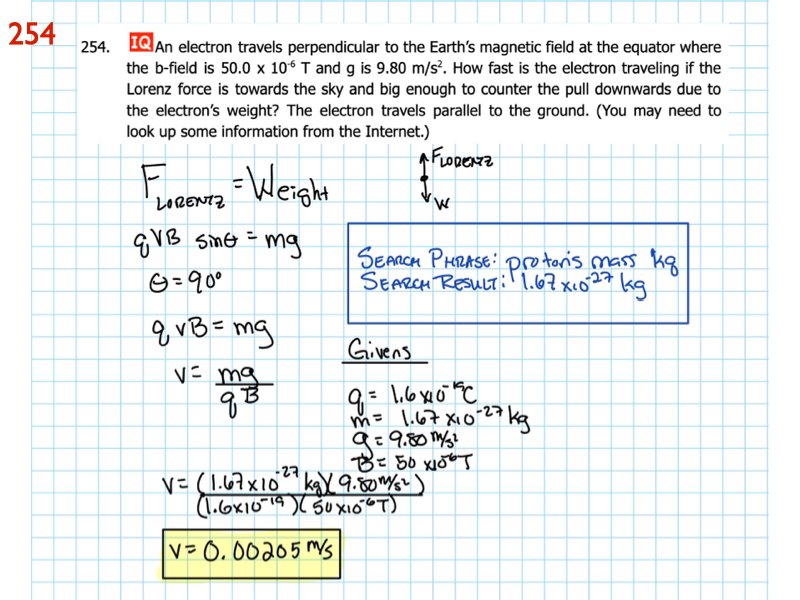 254
254. IQ An electron travels perpendicular to the Earth's magnetic field at the equator where
the b-field is 50.0 x 10⁻⁶ T and g is 9.80 m/s². How fast is the electron traveling if the
Lorenz force is towards the sky and big enough to counter the pull downwards due to
the electron's weight? The electron travels parallel to the ground. (You may need to
look up some information from the Internet.)
F LORENTZ = Weight
F LORENTZ
W
qVB sinθ = mg
θ = 90°
SEARCH PHRASE: proton's mass kg
SEARCH RESULT: 1.67 x10⁻²⁷ kg
q v B = mg
v = mg / qB
Givens
q = 1.6 x10⁻¹⁹C
m = 1.67 x10⁻²⁷ kg
g = 9.80 m/s²
B = 50 x10⁻⁶T
v = (1.67x10⁻²⁷ kg)(9.80m/s²)
(1.6x10⁻¹⁹)(50x10⁻⁶T)
v = 0.00205 m/s